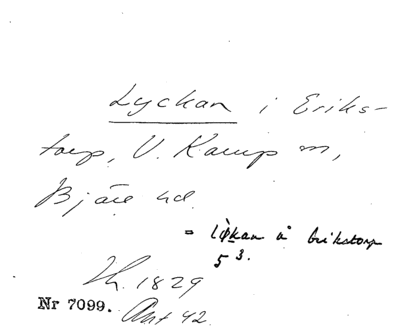 Lyckan i Eriks-
torp, V. Karup sn,
Bjäre hd.
= lø̀kan å Erikstorp
5 3.
Lh. 1829
Nr 7099. Ant 42.